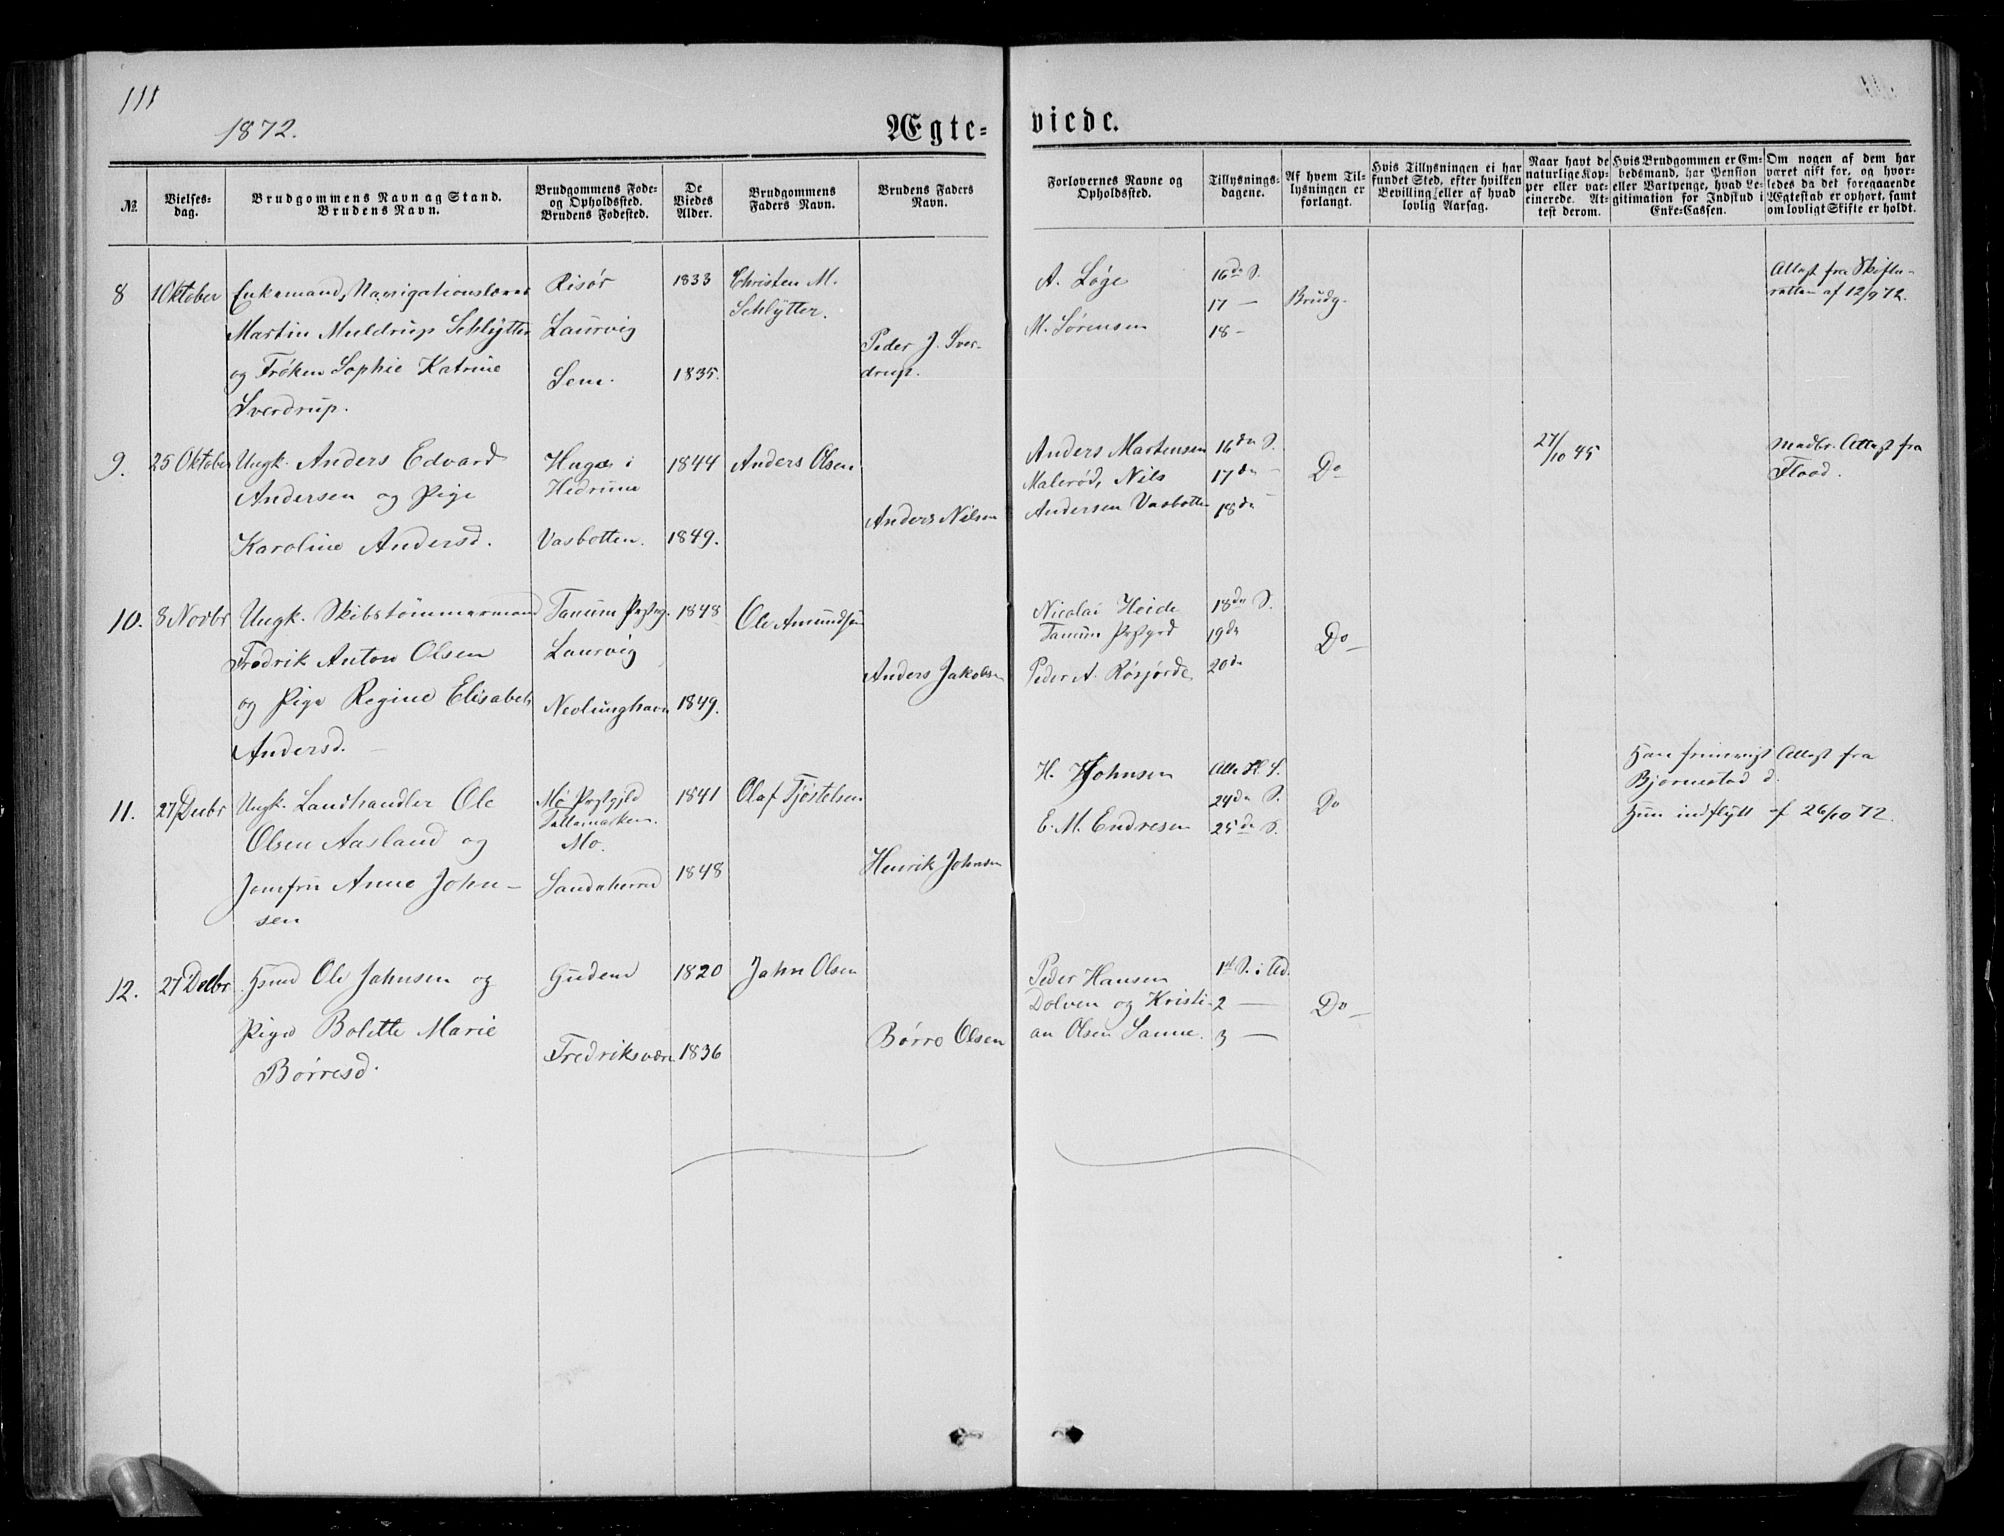 111
1872.
Ægte= viede.
№
Vielses=
dag.
Brudgommens Navn og Stand.
Brudens Navn.
Brudgommens Føde=
og Opholdssted.
Brudens Fødested.
De
Viedes
Alder.
Brudgommens
Faders Navn.
Brudens Faders
Navn.
Forlovernes Navne og
Opholdssted.
Tillysnings=
dagene.
Af hvem Til=
lysningen er
forlangt.
Hvis Tillysningen ei har
fundet Sted, efter hvilken
Bevilling eller af hvad
lovlig Aarsag.
Naar havt de
naturlige Kop=
per eller vac=
cinerede. At=
test derom.
Hvis Brudgommen er Em=
bedsmand, har Pension
eller Vartpenge, hvad Le=
gitimation for Indskud i
Enke=Cassen.
Om nogen af dem har
været gift før, og hvor=
ledes da det foregaaende
Ægtestad er ophørt, samt
om lovligt Skifte er holdt.
8
1 Oktober
Enkemand, Navigationslærer
Martin Muldrup Schlytter
og Frøken Sophie Katrine
Sverdrup.
Risør
Laurvig
Sem.
1833
1835.
Christen M.
Schlytter.
Peder J. Sver-
drup.
A. Løge
M. Sørensen
16de S.
17 —
18 -
Brudg.
Attest fra Skifte-
retten af 12/9 72.
9.
25 Oktober
Ungk. Anders Edvard
Andersen og Pige
Karoline Andersd.
i
Hedrum
Vasbotten.
1844
1849.
Anders Olsen
Anders Nilsen
Anders Martensen
Malerød, Nils
Andersen Vasbotten
16de S.
17de -
18de -
Do
27/10 45
Attest fra
10.
8 Novbr
Ungk. Skibstømmermand
Fredrik Anton Olsen
og Pige Regine Elisabeth
Andersd. —
Tanum
Laurvig
Nevlunghavn
1848
1849.
Ole Amundsen
Anders Jakobsen
Nicolai Heide
Tanum
Peder A. Røsjørde
18de S.
19de
20de
Do —
11.
27 Decbr
Ungk. Landhandler Ole
Olsen Aasland og
Jomfru Anne John-
sen
Mo
Mo.
Sandeherred
1841
1848
Olaf Tjøstelsen
Henrik Johnsen
H. Johnsen
E. M. Endresen
24de S.
25de S.
Do
Attest fra
Hun indflytt af 26/10 72.
12.
27 Decbr
Ole Johnsen og
Pige Bolette Marie
Børresd.
Gudem
Fredriksværn
1820
1836
John Olsen
Børre Olsen
Peder Hansen
Dolven og Kristi-
an Olsen Sanne.
1st S. i Ad.
2 —
3 —
Do —